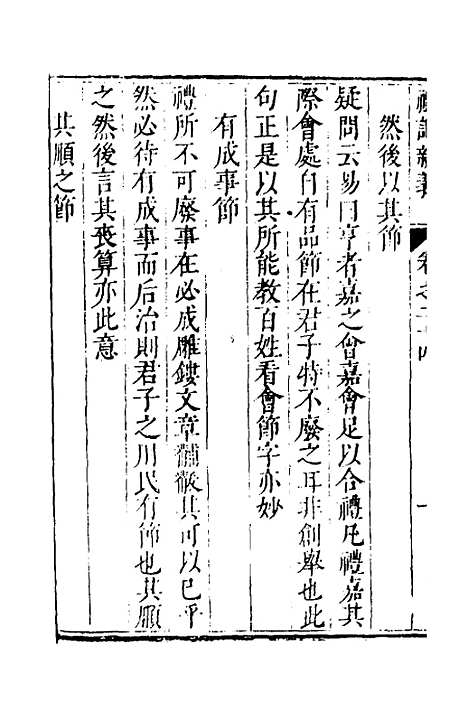 禮記新義 卷之二十四 一
然後以其節
疑問云易曰亨者嘉之會嘉會足以合禮凡禮嘉其
際會處自有品節在君子特不廢之耳非創舉也此
句正是以其所能教百姓看會節字亦妙
有成事節
禮所不可廢事在必成雕鏤文章黼黻其可以已乎
然必待有成事而后治則君子之用民有節也其順
之然後言其喪算亦此意
其順之節